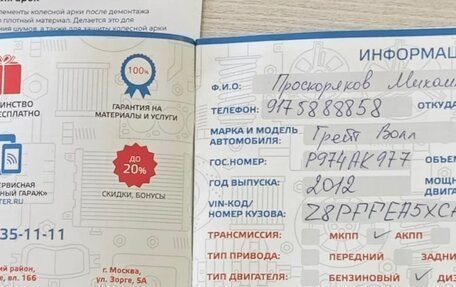 элементы колесной арки после демонтажа
плотный материал. Делается это для
шумов, а также для защиты колесной арки
100%
ГАРАНТИЯ НА
МАТЕРИАЛЫ И УСЛУГИ
ДО
20%
СКИДКИ, БОНУСЫ
35-11-11
вл. 166
г. Москва,
ул. Зорге, 5А
ИНФОРМАЦ
Ф.И.О: Проскоряков Михаи
ТЕЛЕФОН: 9175888858 ОТКУДА
МАРКА И МОДЕЛЬ
АВТОМОБИЛЯ: Грейт Волл
ГОС.НОМЕР: Р974АК977 ОБЪЕМ
ГОД ВЫПУСКА: 2012 МОЩН
ДВИГАТ
VIN-КОД/
НОМЕР КУЗОВА: Z8PFFEA5XCA
ТРАНСМИССИЯ: МКПП ✓ АКПП
ТИП ПРИВОДА: ПЕРЕДНИЙ ЗАДНИ
ТИП ДВИГАТЕЛЯ: БЕНЗИНОВЫЙ ✓ ДИЗ